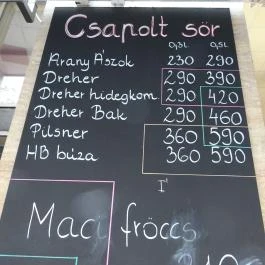 Csapolt sör
0,3L 0,5L
Arany Ászok 230 290
Dreher 290 390
Dreher hidegkom. 290 420
Dreher Bak 290 460
Pilsner 360 590
HB búza 360 590
Maci fröccs